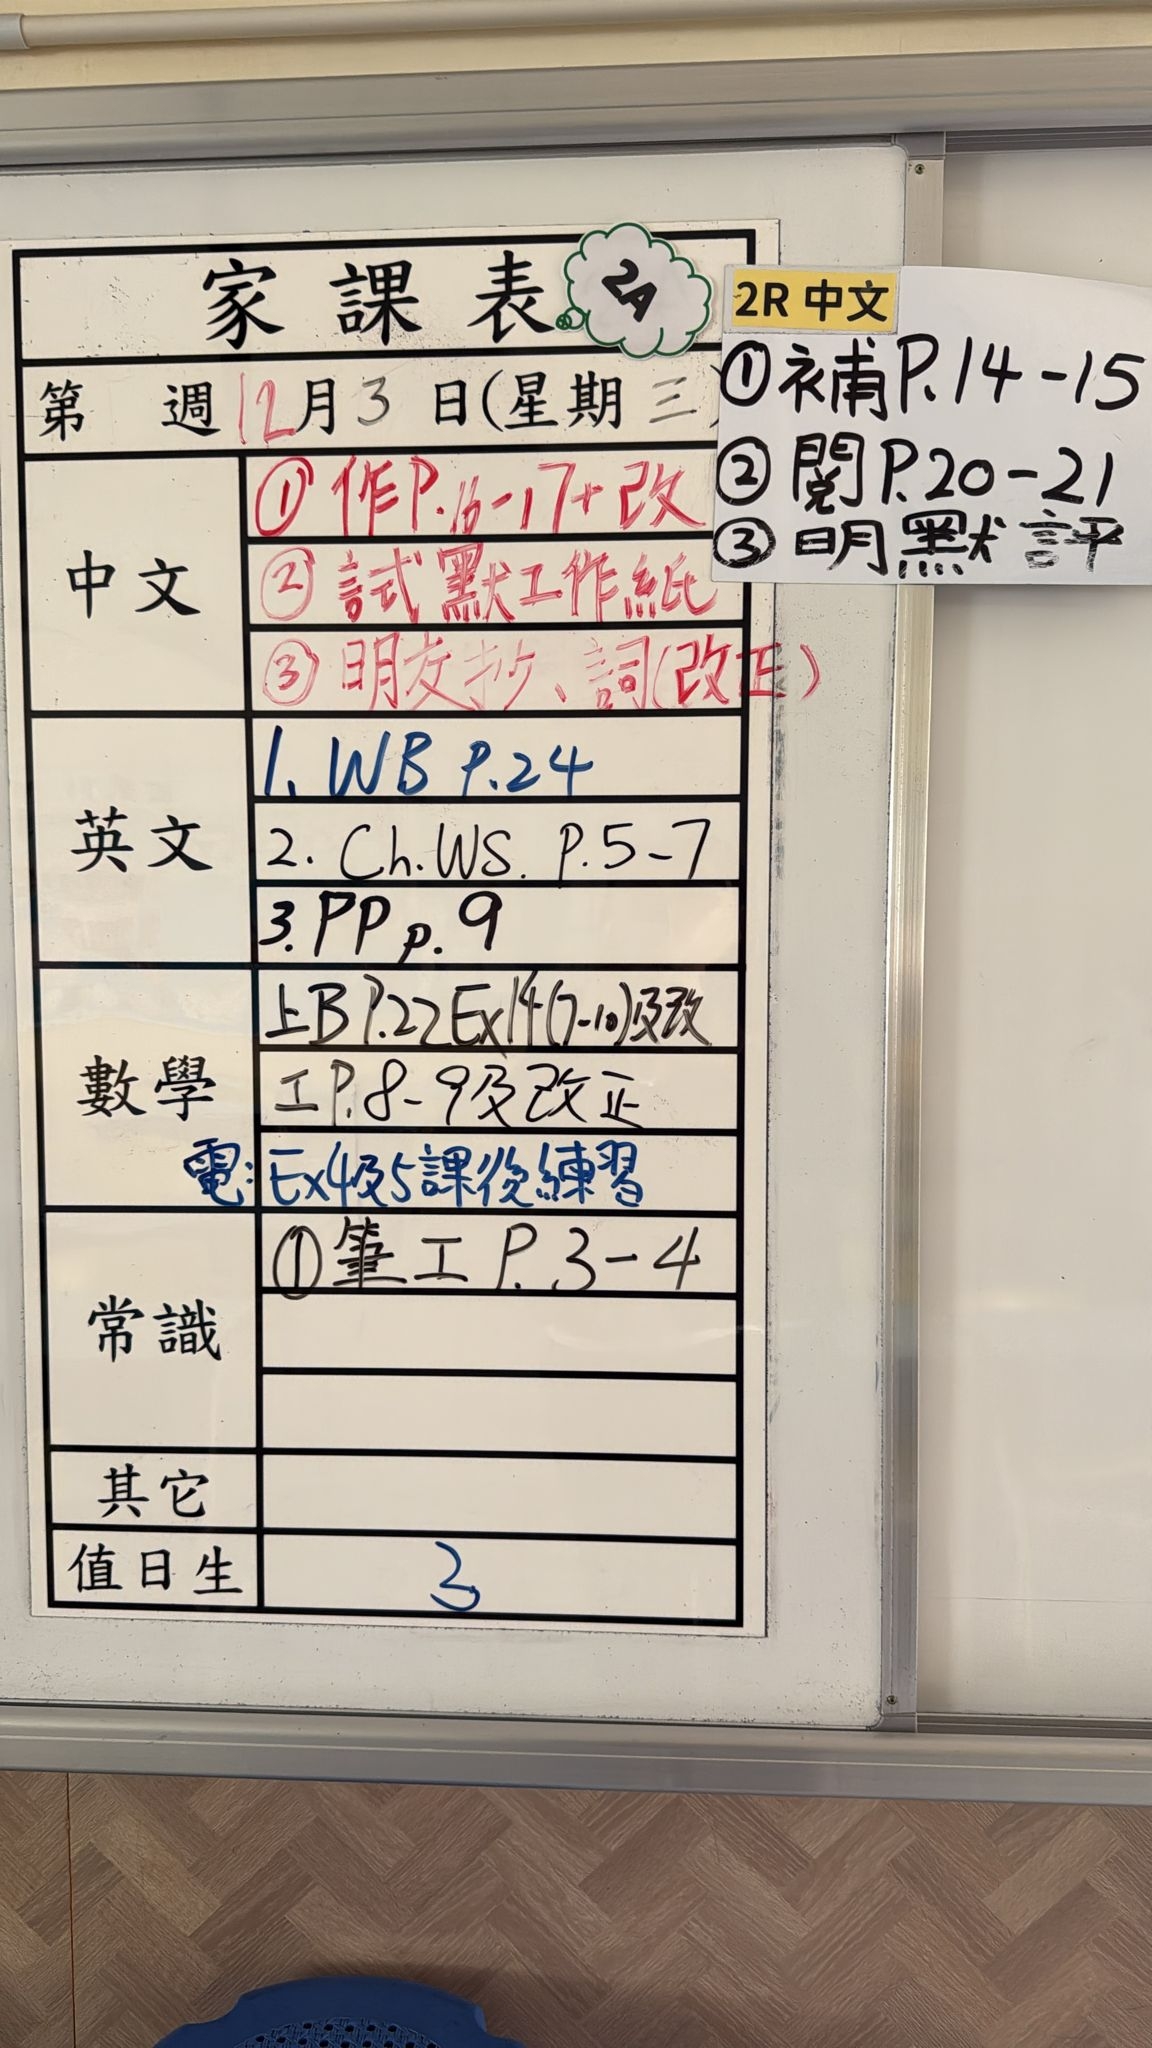 家課表
2A
第 週 12月3日(星期三)
中文
① 作P.16-17+改
② 試默工作紙
③ 明交抄、詞(改正)
2R 中文
① 補P.14-15
② 閱P.20-21
③ 明默評
英文
1. WB P.24
2. Ch.WS. P.5-7
3. PP p.9
數學
上B P.22 Ex14(7-10)及改
工P.8-9及改正
電: Ex4及5課後練習
常識
① 筆工 P.3-4
其它
值日生
3